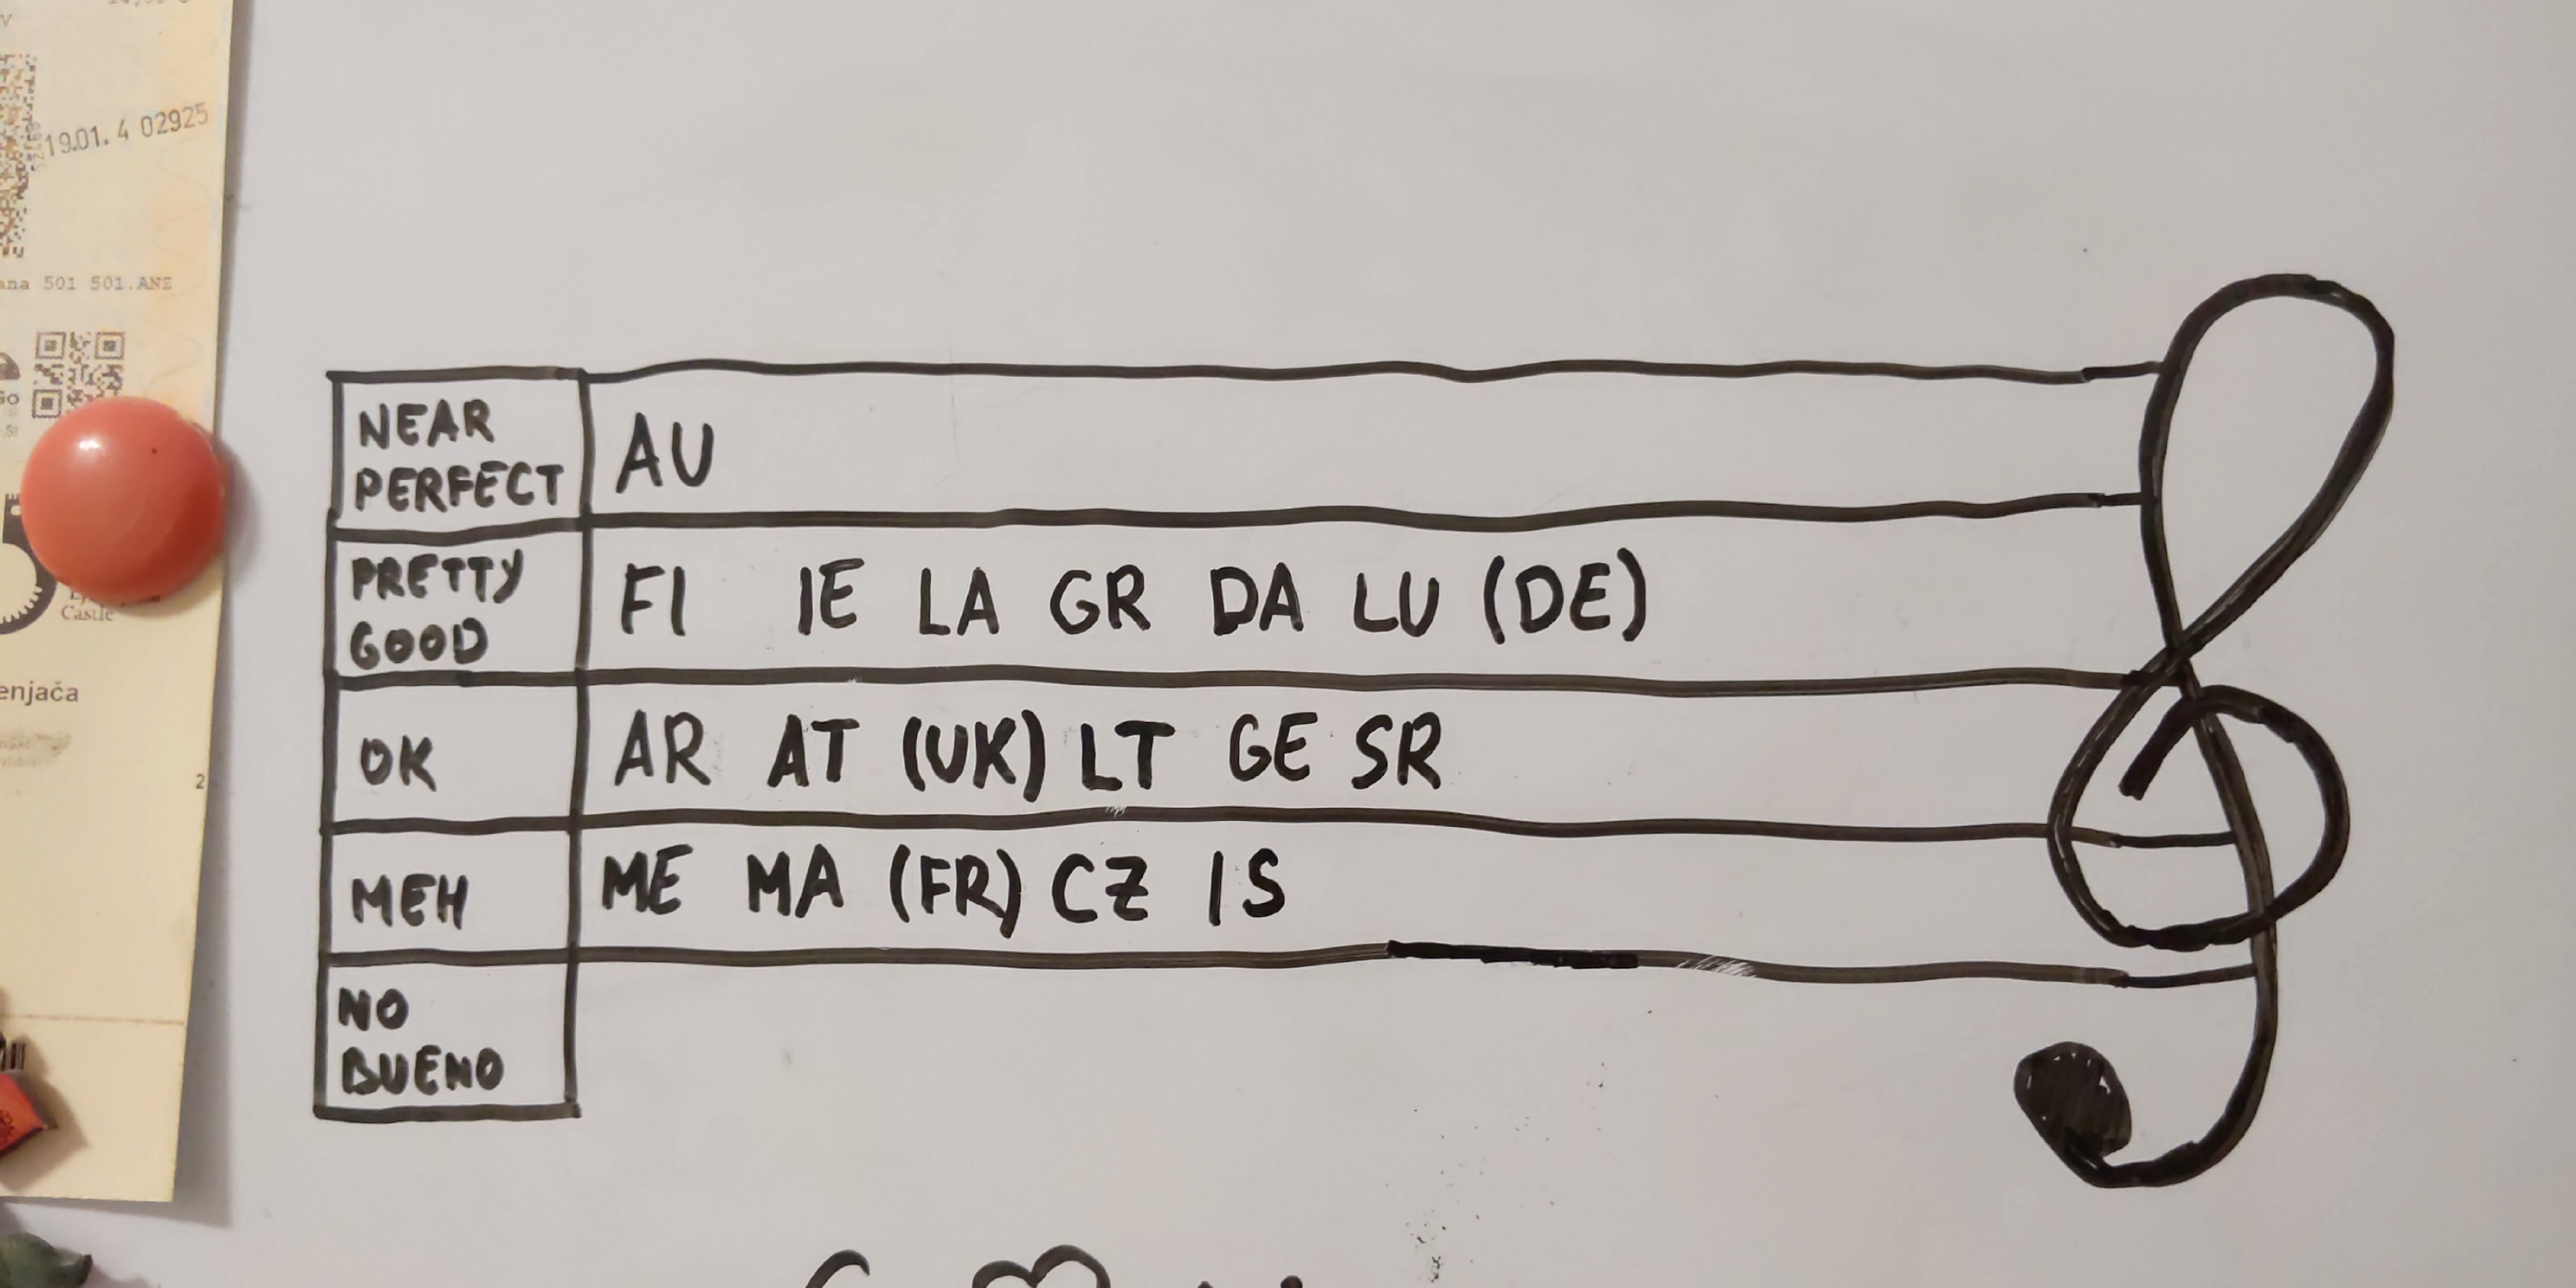 19.01. 4 02925
501 501.ANZ
Castle
enjača
2
NEAR
PERFECT
AU
PRETTY
GOOD
FI IE LA GR DA LU (DE)
OK
AR AT (UK) LT GE SR
MEH
ME MA (FR) CZ IS
NO
BUENO